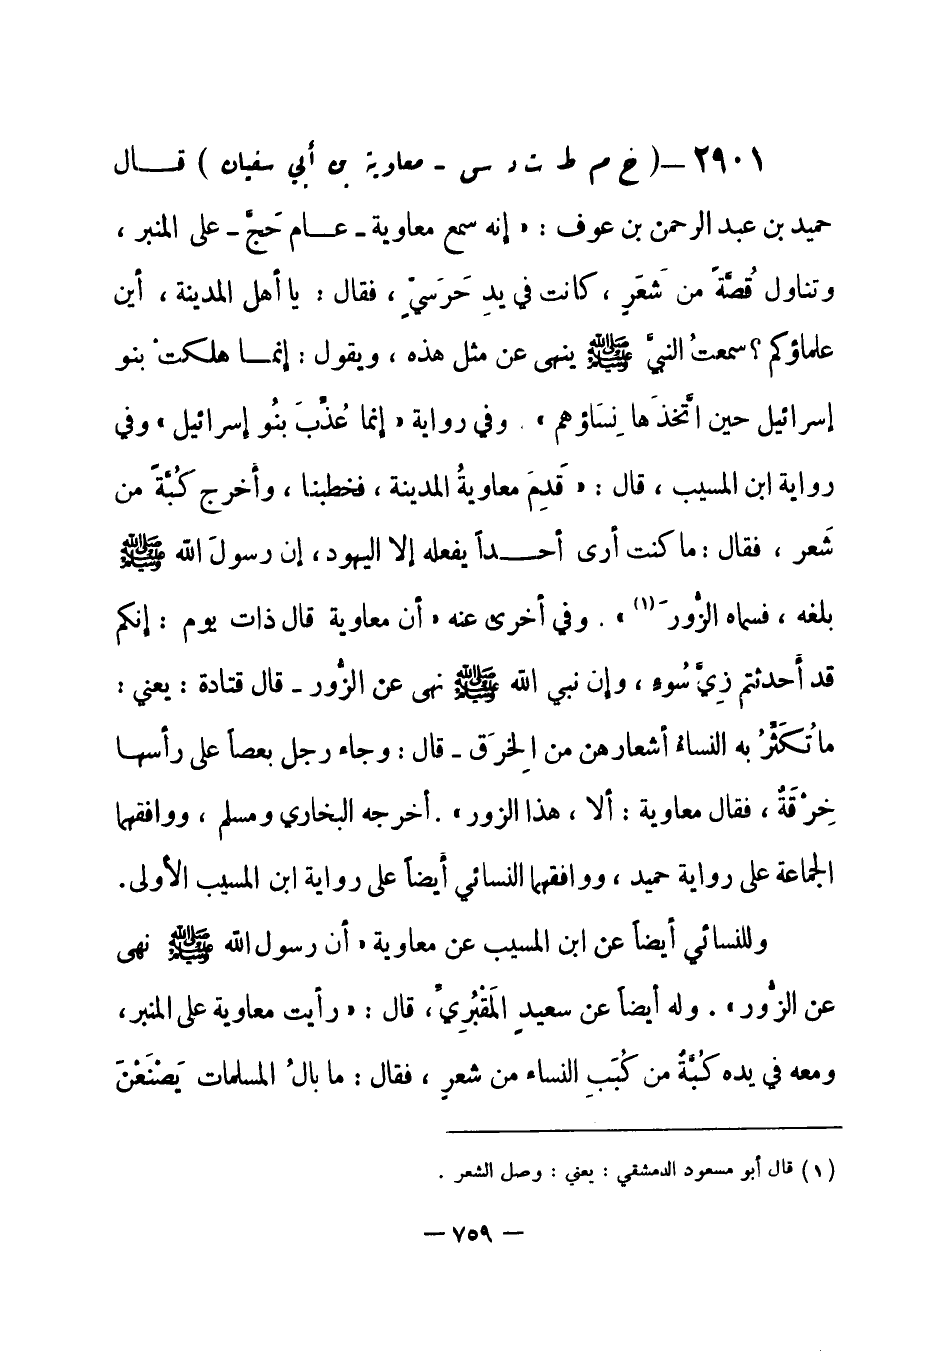 ٢٩٠١ – ( خ م ط ت د س - معاوية بن أبي سفيان ) قـــال
حميد بن عبد الرحمن بن عوف : « إنه سمع معاوية ـ عـــام حَجَّ ـ على المنبر ،
وتناول قُصَّةً من شَعَرٍ ، كانت في يدِ حَرَسَيٍّ ، فقال : يا أهل المدينة ، أين
علماؤكم ؟ سمعتُ النبيَّ ﷺ ينهى عن مثل هذه ، ويقول : إنمـــا هلكتْ بنو
إسرائيل حين اتَّخذَها نِسَاؤهم » . وفي رواية « إنما عُذِّبَ بنُو إسرائيل » وفي
رواية ابن المسيب ، قال : « قَدِمَ معاويةُ المدينة ، فخطبنا ، وأخرج كُبَّةً من
شَعر ، فقال : ما كنت أرى أحـــداً يفعله إلا اليهود ، إن رسولَ الله ﷺ
بلغه ، فسماه الزُّورَ (١) » . وفي أخرى عنه « أن معاوية قال ذات يوم : إنكم
قد أَحدثتم زِيَّ سُوءٍ ، وإن نبي الله ﷺ نهى عن الزُّور ـ قال قتادة : يعني :
ما تُكَثِّرُ به النساءُ أشعارهن من الِخرَق ـ قال : وجاء رجل بعصاً على رأسها
خِرْقَةٌ ، فقال معاوية : ألا ، هذا الزور » . أخرجه البخاري ومسلم ، ووافقهما
الجماعة على رواية حميد ، ووافقهما النسائي أَيضاً على رواية ابن المسيب الأولى .
وللنسائي أيضاً عن ابن المسيب عن معاوية « أن رسول الله ﷺ نهى
عن الزُّور » . وله أيضاً عن سعيدٍ المَقْبُرِيِّ ، قال : « رأيت معاوية على المنبر ،
ومعه في يده كُبَّةٌ من كُبَبِ النساء من شعرٍ ، فقال : ما بالُ المسلمات يَصْنَعْنَ
(١) قال أبو مسعود الدمشقي : يعني : وصل الشعر .
— ٧٥٩ —